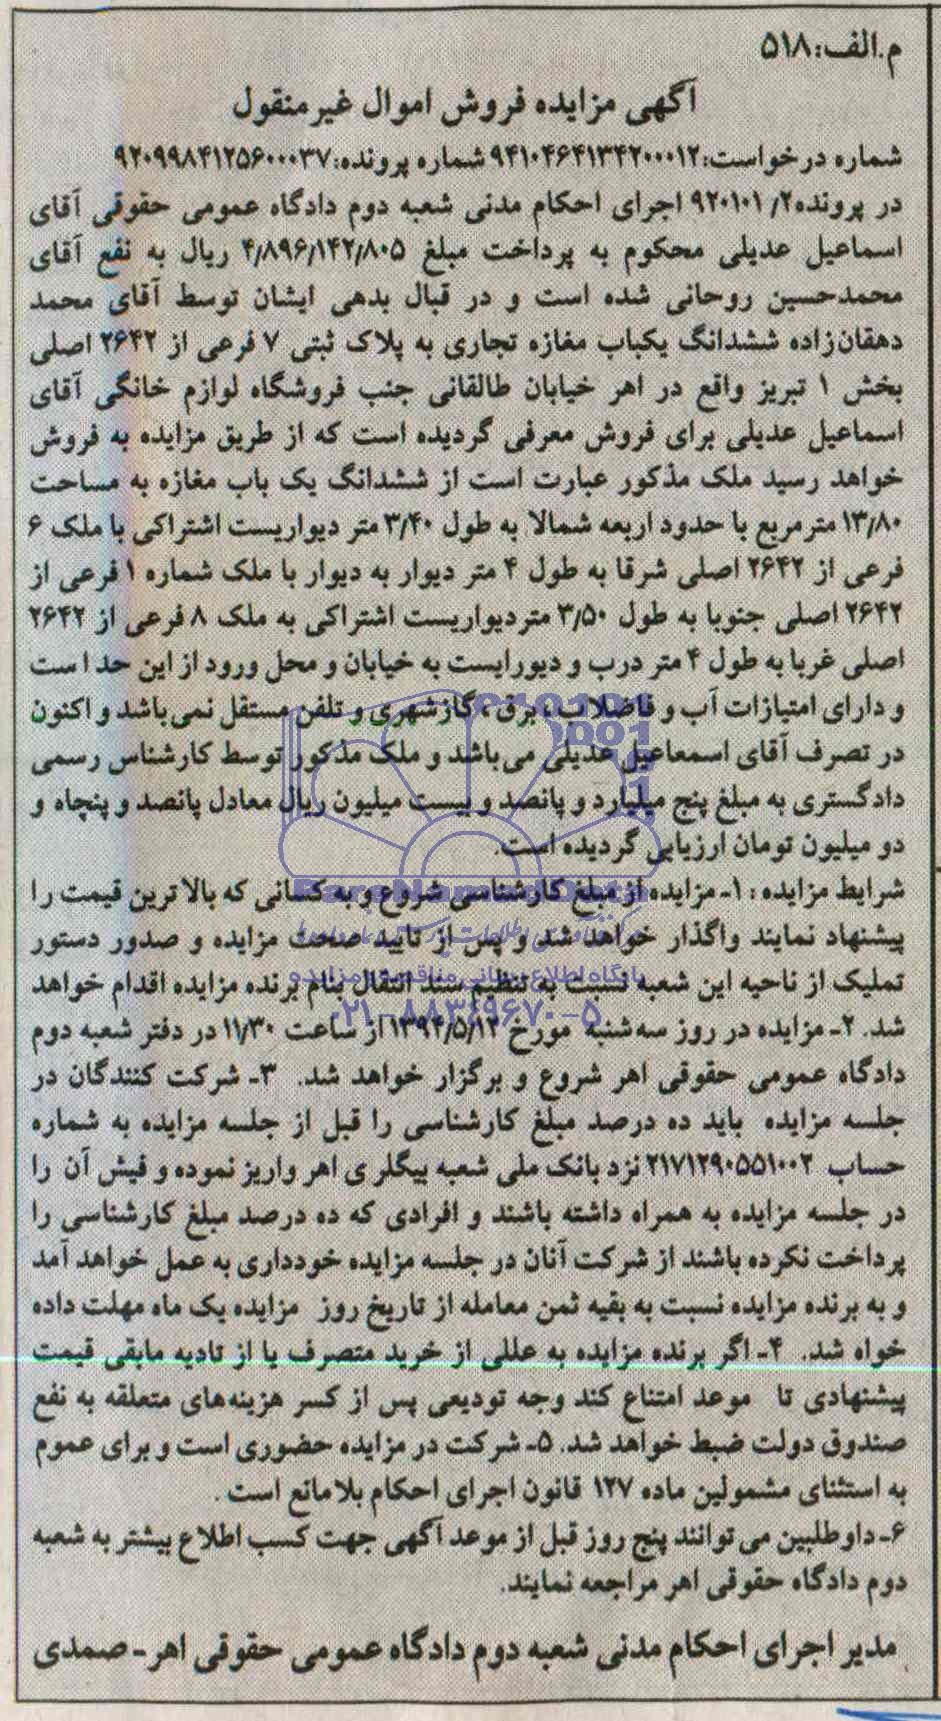 م.الف:۵۱۸
آگهی مزایده فروش اموال غیرمنقول
شماره درخواست:۹۴۱۰۴۶۴۱۳۴۲۰۰۰۱۲ شماره پرونده:۹۲۰۹۹۸۴۱۲۵۶۰۰۰۳۷
در پرونده۹۲۰۱۰۱/۲ اجرای احکام مدنی شعبه دوم دادگاه عمومی حقوقی آقای
اسماعیل عدیلی محکوم به پرداخت مبلغ ۴/۸۹۶/۱۴۲/۸۰۵ ریال به نفع آقای
محمدحسین روحانی شده است و در قبال بدهی ایشان توسط آقای محمد
دهقان‌زاده ششدانگ یکباب مغازه تجاری به پلاک ثبتی ۷ فرعی از ۲۶۴۲ اصلی
بخش ۱ تبریز واقع در اهر خیابان طالقانی جنب فروشگاه لوازم خانگی آقای
اسماعیل عدیلی برای فروش معرفی گردیده است که از طریق مزایده به فروش
خواهد رسید ملک مذکور عبارت است از ششدانگ یک باب مغازه به مساحت
۱۳/۸۰ مترمربع با حدود اربعه شمالا به طول ۳/۴۰ متر دیواریست اشتراکی با ملک ۶
فرعی از ۲۶۴۲ اصلی شرقا به طول ۴ متر دیوار به دیوار با ملک شماره ۱ فرعی از
۲۶۴۲ اصلی جنوبا به طول ۳/۵۰ متردیواریست اشتراکی به ملک ۸ فرعی از ۲۶۴۲
اصلی غربا به طول ۴ متر درب و دیورایست به خیابان و محل ورود از این حد است
و دارای امتیازات آب و فاضلاب، برق، گازشهری و تلفن مستقل نمی‌باشد و اکنون
در تصرف آقای اسمعاعیل عدیلی می‌باشد و ملک مذکور توسط کارشناس رسمی
دادگستری به مبلغ پنج میلیارد و پانصد و بیست میلیون ریال معادل پانصد و پنجاه و
دو میلیون تومان ارزیابی گردیده است.
شرایط مزایده : ۱- مزایده از مبلغ کارشناسی شروع و به کسانی که بالاترین قیمت را
پیشنهاد نمایند واگذار خواهد شد و پس از تایید صحت مزایده و صدور دستور
تملیک از ناحیه این شعبه نسبت به تنظیم سند انتقال بنام برنده مزایده اقدام خواهد
شد. ۲- مزایده در روز سه‌شنبه مورخ ۱۳۹۴/۵/۱۳ از ساعت ۱۱/۳۰ در دفتر شعبه دوم
دادگاه عمومی حقوقی اهر شروع و برگزار خواهد شد. ۳- شرکت کنندگان در
جلسه مزایده باید ده درصد مبلغ کارشناسی را قبل از جلسه مزایده به شماره
حساب ۲۱۷۱۲۹۰۵۵۱۰۰۲ نزد بانک ملی شعبه بیگلری اهر واریز نموده و فیش آن را
در جلسه مزایده به همراه داشته باشند و افرادی که ده درصد مبلغ کارشناسی را
پرداخت نکرده باشند از شرکت آنان در جلسه مزایده خودداری به عمل خواهد آمد
و به برنده مزایده نسبت به بقیه ثمن معامله از تاریخ روز مزایده یک ماه مهلت داده
خواه شد. ۴- اگر برنده مزایده به عللی از خرید متصرف یا از تادیه مابقی قیمت
پیشنهادی تا موعد امتناع کند وجه تودیعی پس از کسر هزینه‌های متعلقه به نفع
صندوق دولت ضبط خواهد شد. ۵- شرکت در مزایده حضوری است و برای عموم
به استثنای مشمولین ماده ۱۲۷ قانون اجرای احکام بلامانع است .
۶- داوطلبین می‌توانند پنج روز قبل از موعد آگهی جهت کسب اطلاع بیشتر به شعبه
دوم دادگاه حقوقی اهر مراجعه نمایند.
مدیر اجرای احکام مدنی شعبه دوم دادگاه عمومی حقوقی اهر- صمدی
پایگاه اطلاع رسانی مناقصه و مزایده
۰۲۱-۸۸۳۴۹۶۷۰-۵